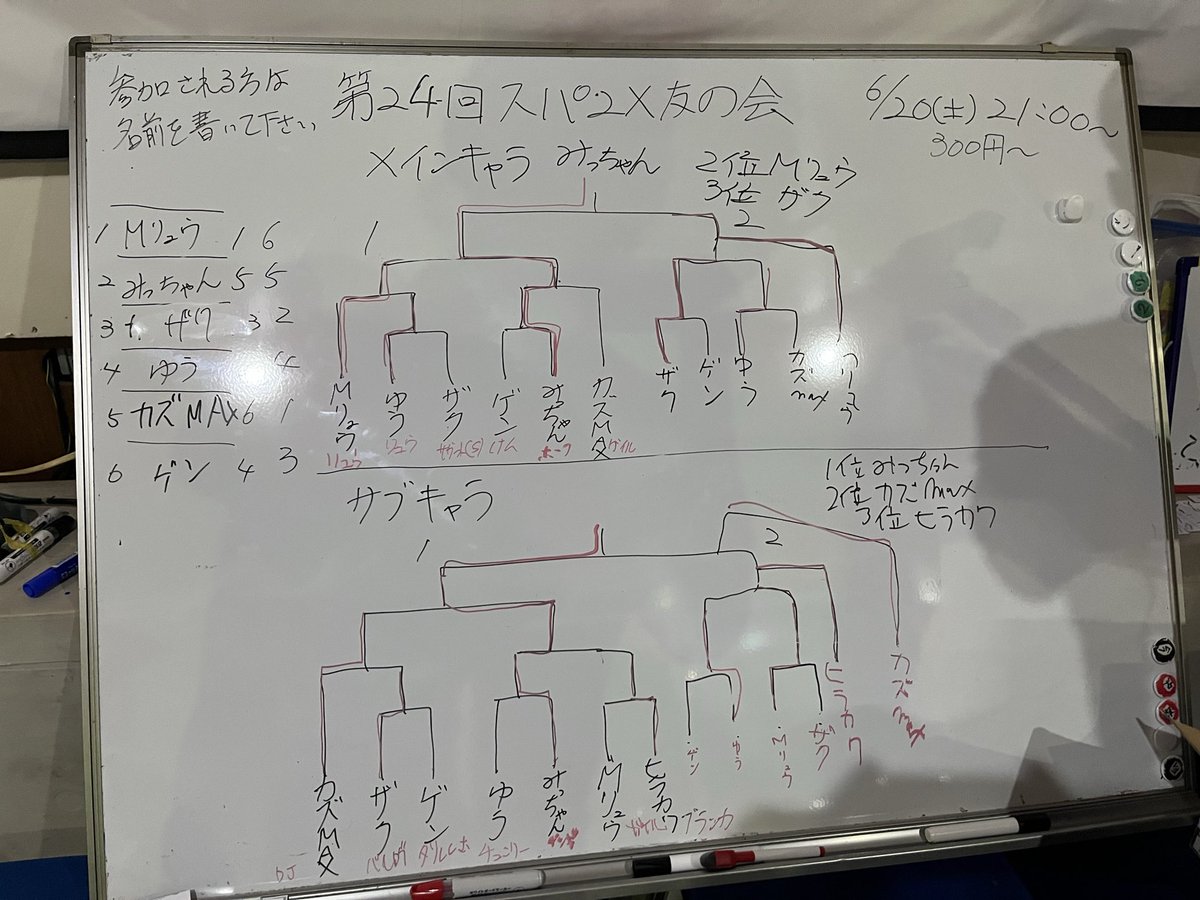 参加される方は
名前を書いて下さい
第24回スパ2X友の会
6/20(土)21:00〜
300円〜
メインキャラ みっちゃん
2位 Mリュウ
3位 ザク
1 Mリュウ 1 6
2 みっちゃん 5 5
3 ザク 3 2
4 ゆう 4
5 カズMAX 6 1
6 ゲン 4 3
1
2
Mリュウ
ゆう
ザク
ゲン
みっちゃん
カズMAX
ザク
ゲン
ゆう
カズmax
Mリュウ
リュウ
リュウ
けん
ホーク
ガイル
サブキャラ
1位 みっちゃん
2位 カズmax
3位 ヒラカワ
1
2
カズMAX
ザク
ゲン
ゆう
みっちゃん
Mリュウ
ヒラカワ
ゲン
ゆう
Mリュウ
ザク
ヒラカワ
カズmax
DJ
ベガ
ダルシム
チュンリー
ガイル
ブランカ